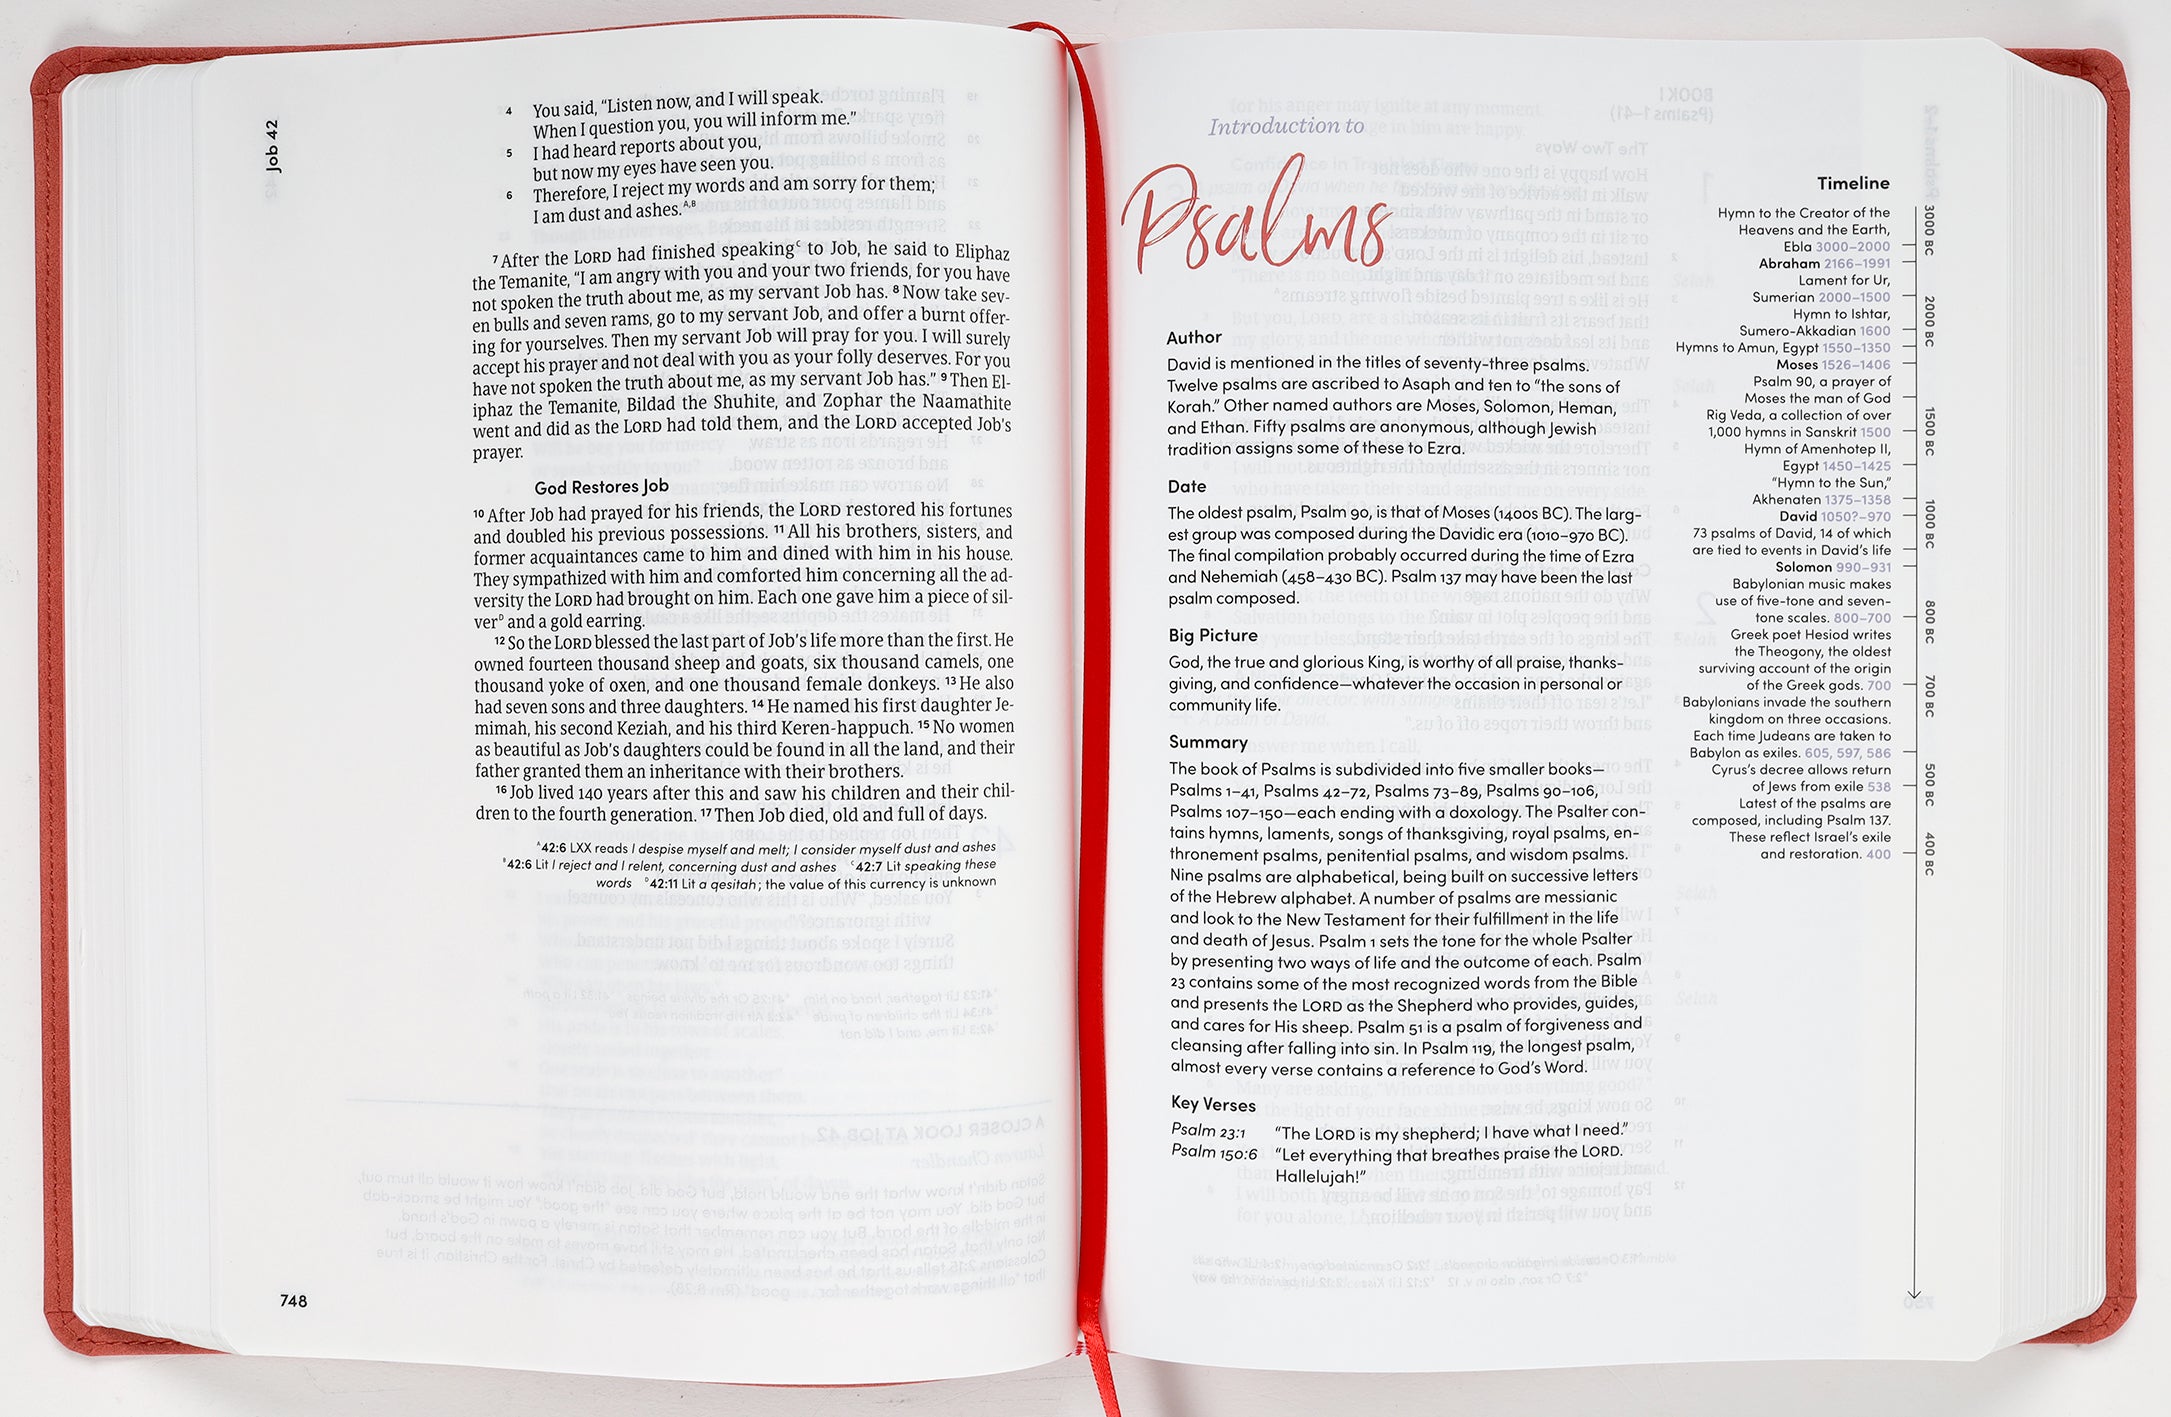 Job 42
4 You said, “Listen now, and I will speak.
When I question you, you will inform me.”
5 I had heard reports about you,
but now my eyes have seen you.
6 Therefore, I reject my words and am sorry for them;
I am dust and ashes.A,B
7 After the LORD had finished speakingC to Job, he said to Eliphaz
the Temanite, “I am angry with you and your two friends, for you have
not spoken the truth about me, as my servant Job has. 8 Now take sev-
en bulls and seven rams, go to my servant Job, and offer a burnt offer-
ing for yourselves. Then my servant Job will pray for you. I will surely
accept his prayer and not deal with you as your folly deserves. For you
have not spoken the truth about me, as my servant Job has.” 9 Then El-
iphaz the Temanite, Bildad the Shuhite, and Zophar the Naamathite
went and did as the LORD had told them, and the LORD accepted Job’s
prayer.
God Restores Job
10 After Job had prayed for his friends, the LORD restored his fortunes
and doubled his previous possessions. 11 All his brothers, sisters, and
former acquaintances came to him and dined with him in his house.
They sympathized with him and comforted him concerning all the ad-
versity the LORD had brought on him. Each one gave him a piece of sil-
verD and a gold earring.
12 So the LORD blessed the last part of Job’s life more than the first. He
owned fourteen thousand sheep and goats, six thousand camels, one
thousand yoke of oxen, and one thousand female donkeys. 13 He also
had seven sons and three daughters. 14 He named his first daughter Je-
mimah, his second Keziah, and his third Keren-happuch. 15 No women
as beautiful as Job’s daughters could be found in all the land, and their
father granted them an inheritance with their brothers.
16 Job lived 140 years after this and saw his children and their chil-
dren to the fourth generation. 17 Then Job died, old and full of days.
A 42:6 LXX reads I despise myself and melt; I consider myself dust and ashes
B 42:6 Lit I reject and I relent, concerning dust and ashes C 42:7 Lit speaking these
words D 42:11 Lit a qesitah; the value of this currency is unknown
748
Introduction to
Psalms
Author
David is mentioned in the titles of seventy-three psalms.
Twelve psalms are ascribed to Asaph and ten to “the sons of
Korah.” Other named authors are Moses, Solomon, Heman,
and Ethan. Fifty psalms are anonymous, although Jewish
tradition assigns some of these to Ezra.
Date
The oldest psalm, Psalm 90, is that of Moses (1400s BC). The larg-
est group was composed during the Davidic era (1010–970 BC).
The final compilation probably occurred during the time of Ezra
and Nehemiah (458–430 BC). Psalm 137 may have been the last
psalm composed.
Big Picture
God, the true and glorious King, is worthy of all praise, thanks-
giving, and confidence—whatever the occasion in personal or
community life.
Summary
The book of Psalms is subdivided into five smaller books—
Psalms 1–41, Psalms 42–72, Psalms 73–89, Psalms 90–106,
Psalms 107–150—each ending with a doxology. The Psalter con-
tains hymns, laments, songs of thanksgiving, royal psalms, en-
thronement psalms, penitential psalms, and wisdom psalms.
Nine psalms are alphabetical, being built on successive letters
of the Hebrew alphabet. A number of psalms are messianic
and look to the New Testament for their fulfillment in the life
and death of Jesus. Psalm 1 sets the tone for the whole Psalter
by presenting two ways of life and the outcome of each. Psalm
23 contains some of the most recognized words from the Bible
and presents the LORD as the Shepherd who provides, guides,
and cares for His sheep. Psalm 51 is a psalm of forgiveness and
cleansing after falling into sin. In Psalm 119, the longest psalm,
almost every verse contains a reference to God’s Word.
Key Verses
Psalm 23:1 “The LORD is my shepherd; I have what I need.”
Psalm 150:6 “Let everything that breathes praise the LORD.
Hallelujah!”
Timeline
Hymn to the Creator of the
Heavens and the Earth,
Ebla 3000–2000
Abraham 2166–1991
Lament for Ur,
Sumerian 2000–1500
Hymn to Ishtar,
Sumero-Akkadian 1600
Hymns to Amun, Egypt 1550–1350
Moses 1526–1406
Psalm 90, a prayer of
Moses the man of God
Rig Veda, a collection of over
1,000 hymns in Sanskrit 1500
Hymn of Amenhotep II,
Egypt 1450–1425
“Hymn to the Sun,”
Akhenaten 1375–1358
David 1050?–970
73 psalms of David, 14 of which
are tied to events in David’s life
Solomon 990–931
Babylonian music makes
use of five-tone and seven-
tone scales. 800–700
Greek poet Hesiod writes
the Theogony, the oldest
surviving account of the origin
of the Greek gods. 700
Babylonians invade the southern
kingdom on three occasions.
Each time Judeans are taken to
Babylon as exiles. 605, 597, 586
Cyrus’s decree allows return
of Jews from exile 538
Latest of the psalms are
composed, including Psalm 137.
These reflect Israel’s exile
and restoration. 400
3000 BC
2000 BC
1500 BC
1000 BC
800 BC
700 BC
500 BC
400 BC